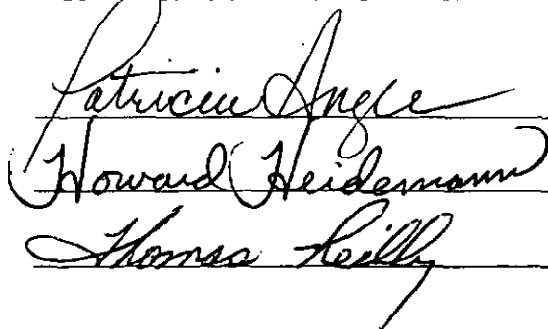 Patricia Angle
Howard Heidemann
Thomas Reilly